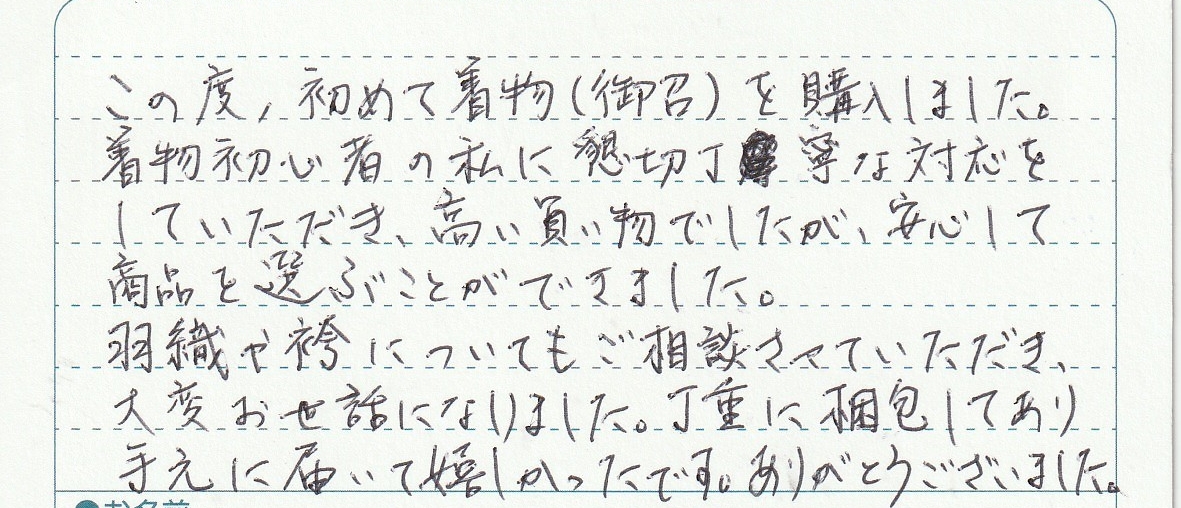 この度、初めて着物(御召)を購入しました。
着物初心者の私に懇切丁寧な対応を
していただき、高い買い物でしたが、安心して
商品を選ぶことができました。
羽織や袴についてもご相談させていただき、
大変お世話になりました。丁重に梱包してあり
手元に届いて嬉しかったです。ありがとうございました。
●お名前